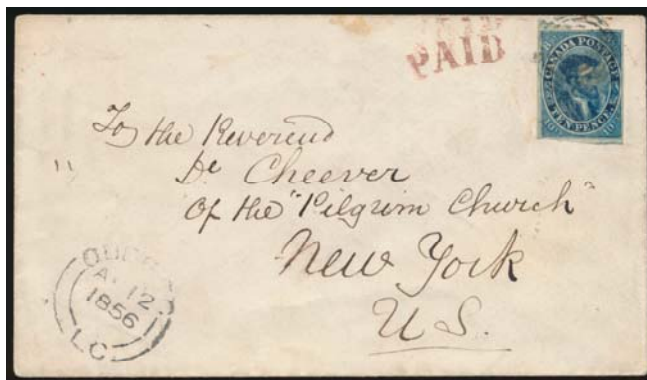 PAID
CANADA POSTAGE
TEN PENCE
To the Reverend
Dr Cheever
Of the "Pilgrim Church"
New York
U S.
12
1856
L.C.